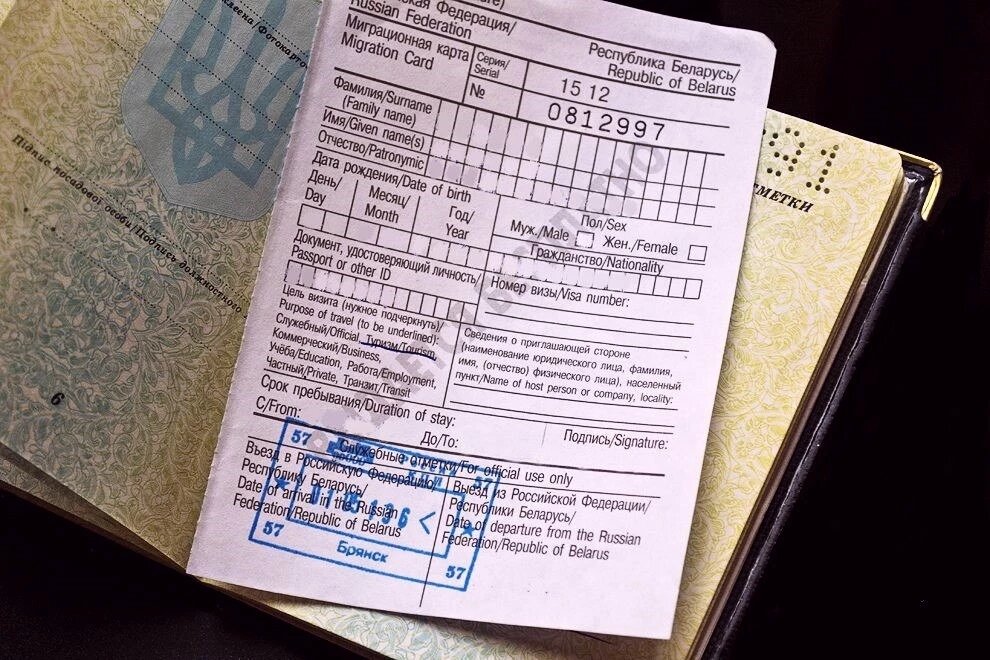 Russian Federation
Республика Беларусь/
Republic of Belarus
Миграционная карта
Migration Card
Серия/
Serial
15 12
№
0812997
Фамилия/Surname
(Family name)
Имя/Given name(s)
Отчество/Patronymic
Дата рождения/Date of birth
День/
Day
Месяц/
Month
Год/
Year
Пол/Sex
Муж./Male
Жен./Female
Гражданство/Nationality
Документ, удостоверяющий личность/
Passport or other ID
Номер визы/Visa number:
Цель визита (нужное подчеркнуть)/
Purpose of travel (to be underlined):
Служебный/Official, Туризм/Tourism,
Коммерческий/Business,
Учёба/Education, Работа/Employment,
Частный/Private, Транзит/Transit
Сведения о приглашающей стороне
(наименование юридического лица, фамилия,
имя, (отчество) физического лица), населенный
пункт/Name of host person or company, locality:
Срок пребывания/Duration of stay:
С/From:
До/To:
Подпись/Signature:
Служебные отметки/For official use only
Въезд в Российскую Федерацию/
Республику Беларусь/
Date of arrival in the Russian
Federation/Republic of Belarus
Выезд из Российской Федерации/
Республики Беларусь/
Date of departure from the Russian
Federation/Republic of Belarus
57
57
57
Брянск
57
Підпис посадової особи/Подпись должностного
6